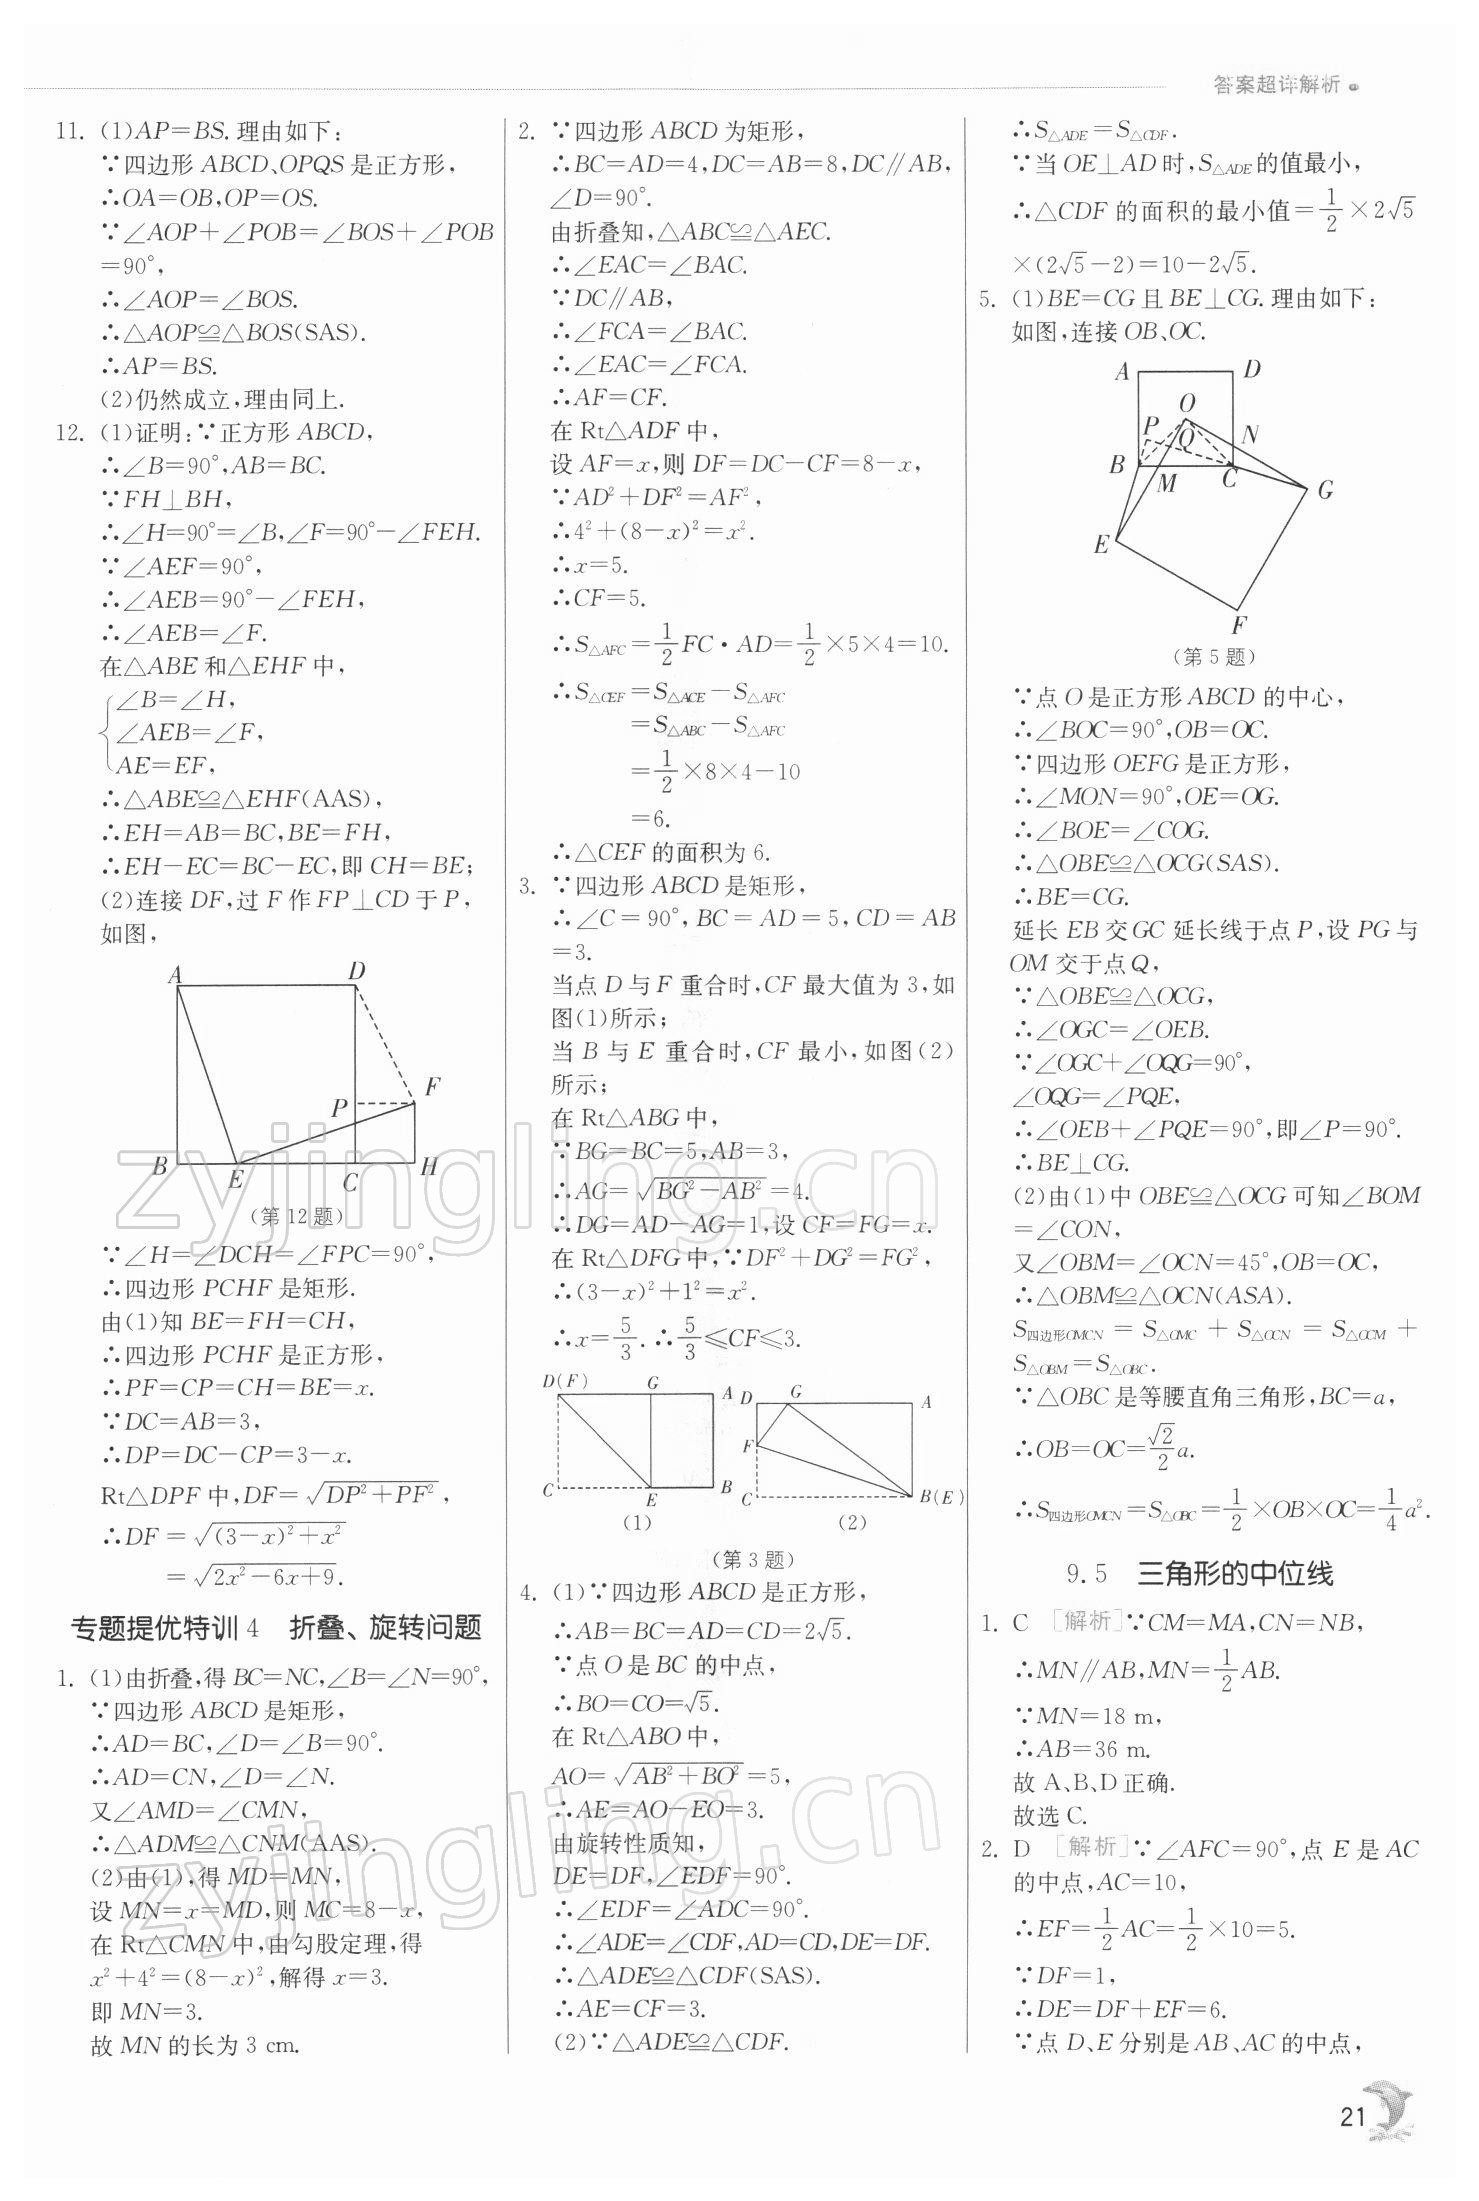 答案超详解析
11. (1)AP=BS.理由如下:
∵四边形ABCD、OPQS是正方形,
∴OA=OB,OP=OS.
∵∠AOP+∠POB=∠BOS+∠POB
=90°,
∴∠AOP=∠BOS.
∴△AOP≌△BOS(SAS).
∴AP=BS.
(2)仍然成立,理由同上.
12. (1)证明:∵正方形ABCD,
∴∠B=90°,AB=BC.
∵FH⊥BH,
∴∠H=90°=∠B,∠F=90°-∠FEH.
∵∠AEF=90°,
∴∠AEB=90°-∠FEH,
∴∠AEB=∠F.
在△ABE和△EHF中,
∠B=∠H,
∠AEB=∠F,
AE=EF,
∴△ABE≌△EHF(AAS),
∴EH=AB=BC,BE=FH,
∴EH-EC=BC-EC,即CH=BE;
(2)连接DF,过F作FP⊥CD于P,
如图,
A D
F
P
B E C H
(第12题)
∵∠H=∠DCH=∠FPC=90°,
∴四边形PCHF是矩形.
由(1)知BE=FH=CH,
∴四边形PCHF是正方形,
∴PF=CP=CH=BE=x.
∵DC=AB=3,
∴DP=DC-CP=3-x.
Rt△DPF中,DF=√(DP²+PF²),
∴DF=√((3-x)²+x²)
=√(2x²-6x+9).
专题提优特训4 折叠、旋转问题
1. (1)由折叠,得BC=NC,∠B=∠N=90°,
∵四边形ABCD是矩形,
∴AD=BC,∠D=∠B=90°.
∴AD=CN,∠D=∠N.
又∠AMD=∠CMN,
∴△ADM≌△CNM(AAS).
(2)由(1),得MD=MN,
设MN=x=MD,则MC=8-x,
在Rt△CMN中,由勾股定理,得
x²+4²=(8-x)²,解得x=3.
即MN=3.
故MN的长为3 cm.
2. ∵四边形ABCD为矩形,
∴BC=AD=4,DC=AB=8,DC∥AB,
∠D=90°.
由折叠知,△ABC≌△AEC.
∴∠EAC=∠BAC.
∵DC∥AB,
∴∠FCA=∠BAC.
∴∠EAC=∠FCA.
∴AF=CF.
在Rt△ADF中,
设AF=x,则DF=DC-CF=8-x,
∵AD²+DF²=AF²,
∴4²+(8-x)²=x².
∴x=5.
∴CF=5.
∴S△AFC=1/2FC·AD=1/2×5×4=10.
∴S△CEF=S△ACE-S△AFC
=S△ABC-S△AFC
=1/2×8×4-10
=6.
∴△CEF的面积为6.
3. ∵四边形ABCD是矩形,
∴∠C=90°,BC=AD=5,CD=AB
=3.
当点D与F重合时,CF最大值为3,如
图(1)所示;
当B与E重合时,CF最小,如图(2)
所示;
在Rt△ABG中,
∵BG=BC=5,AB=3,
∴AG=√(BG²-AB²)=4.
∴DG=AD-AG=1,设CF=FG=x.
在Rt△DFG中,∵DF²+DG²=FG²,
∴(3-x)²+1²=x².
∴x=5/3.∴5/3≤CF≤3.
D(F) G A D G A
F
C E B C B(E)
(1) (2)
(第3题)
4. (1)∵四边形ABCD是正方形,
∴AB=BC=AD=CD=2√5.
∵点O是BC的中点,
∴BO=CO=√5.
在Rt△ABO中,
AO=√(AB²+BO²)=5,
∴AE=AO-EO=3.
由旋转性质知,
DE=DF,∠EDF=90°.
∴∠EDF=∠ADC=90°.
∴∠ADE=∠CDF,AD=CD,DE=DF.
∴△ADE≌△CDF(SAS).
∴AE=CF=3.
(2)∵△ADE≌△CDF.
∴S△ADE=S△CDF.
∵当OE⊥AD时,S△ADE的值最小,
∴△CDF的面积的最小值=1/2×2√5
×(2√5-2)=10-2√5.
5. (1)BE=CG且BE⊥CG.理由如下:
如图,连接OB、OC.
A D
O
P Q N
B M C G
E
F
(第5题)
∵点O是正方形ABCD的中心,
∴∠BOC=90°,OB=OC.
∵四边形OEFG是正方形,
∴∠MON=90°,OE=OG.
∴∠BOE=∠COG.
∴△OBE≌△OCG(SAS).
∴BE=CG.
延长EB交GC延长线于点P,设PG与
OM交于点Q,
∵△OBE≌△OCG,
∴∠OGC=∠OEB.
∵∠OGC+∠OQG=90°,
∠OQG=∠PQE,
∴∠OEB+∠PQE=90°,即∠P=90°.
∴BE⊥CG.
(2)由(1)中OBE≌△OCG可知∠BOM
=∠CON,
又∠OBM=∠OCN=45°,OB=OC,
∴△OBM≌△OCN(ASA).
S四边形OMCN=S△OMC+S△OCN=S△OCM+
S△OBM=S△OBC.
∵△OBC是等腰直角三角形,BC=a,
∴OB=OC=√2/2a.
∴S四边形OMCN=S△OBC=1/2×OB×OC=1/4a².
9.5 三角形的中位线
1. C [解析]∵CM=MA,CN=NB,
∴MN∥AB,MN=1/2AB.
∵MN=18 m,
∴AB=36 m.
故A、B、D正确.
故选C.
2. D [解析]∵∠AFC=90°,点E是AC
的中点,AC=10,
∴EF=1/2AC=1/2×10=5.
∵DF=1,
∴DE=DF+EF=6.
∵点D、E分别是AB、AC的中点,
21
zyjingling.cn
zyjingling.cn